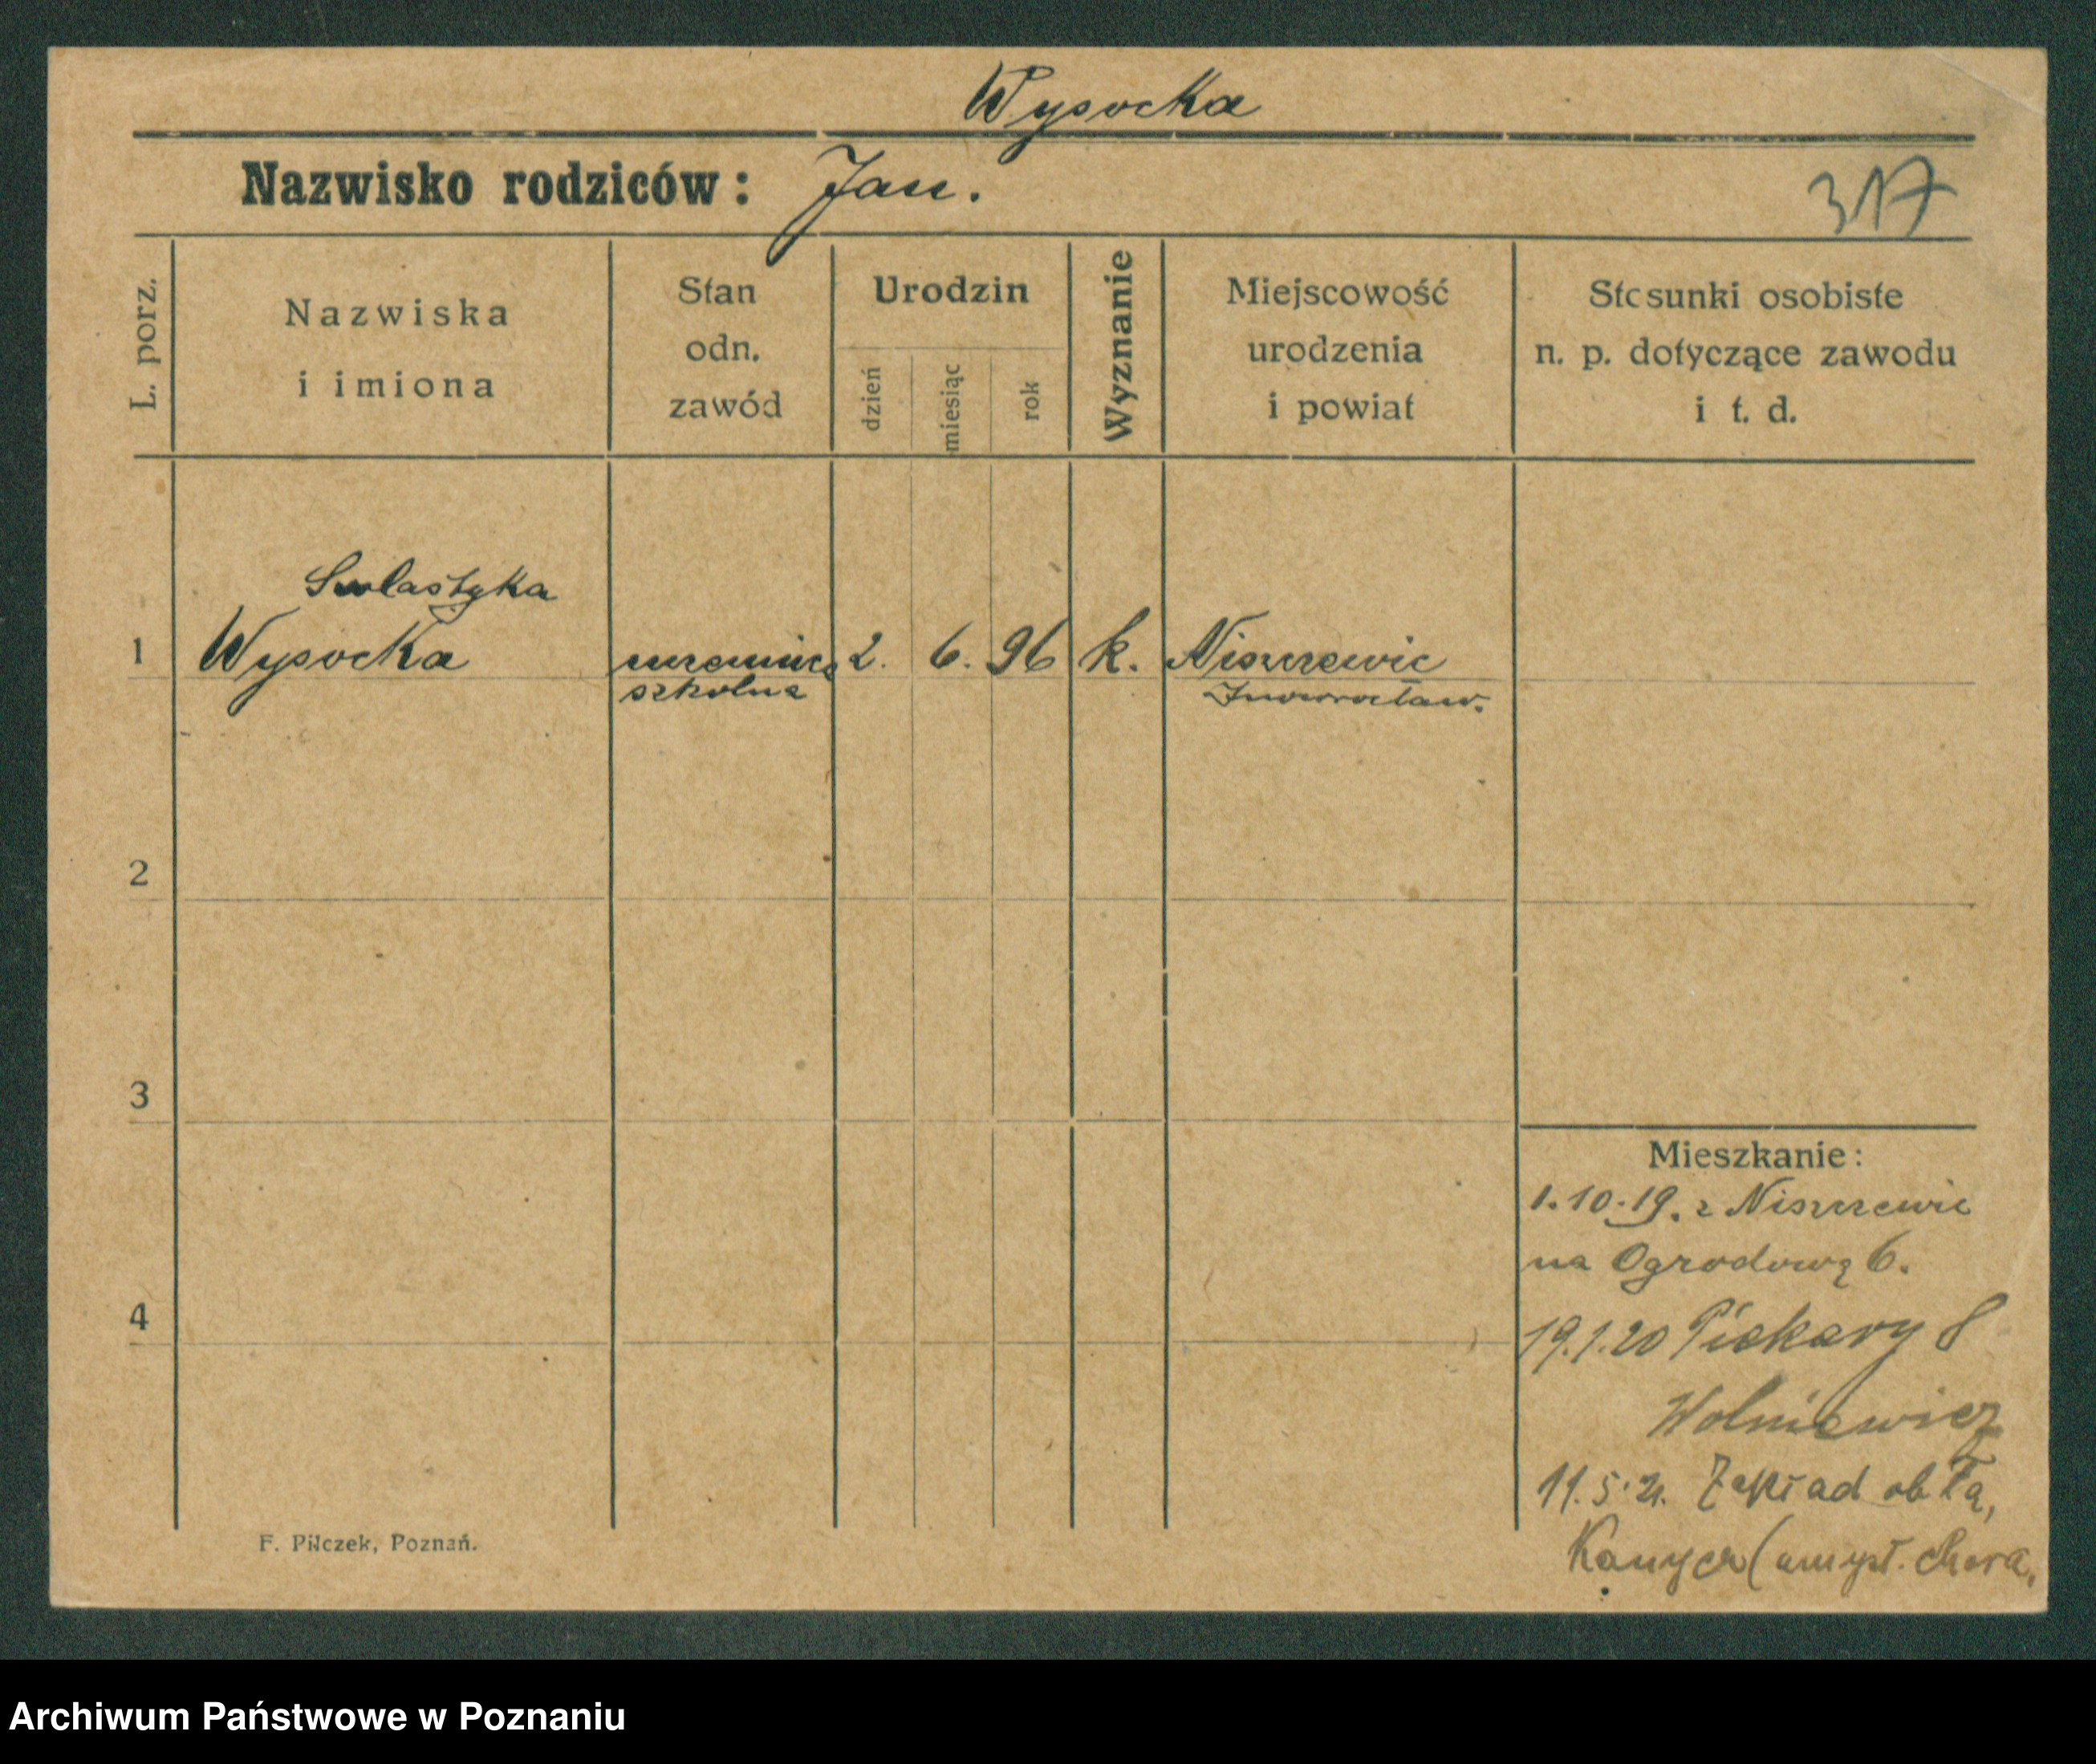 Wysocka
Nazwisko rodziców: Jan.
317
L. porz.
Nazwiska
i imiona
Stan
odn.
zawód
Urodzin
dzień
miesiąc
rok
Wyznanie
Miejscowość
urodzenia
i powiat
Stosunki osobiste
n. p. dotyczące zawodu
i t. d.
Scolastyka
1 Wysocka uczennica 2. 6. 96 k. Niszczewic
szkolna Inowrocław.
2
3
4
Mieszkanie:
1.10.19. z Niszczewic
na Ogrodową 6.
19.1.20 Piekary 8
Wolniewicz
11.5.21. Zakład obłą,
Kanych (umysł. chora.
F. Pilczek, Poznań.
Archiwum Państwowe w Poznaniu